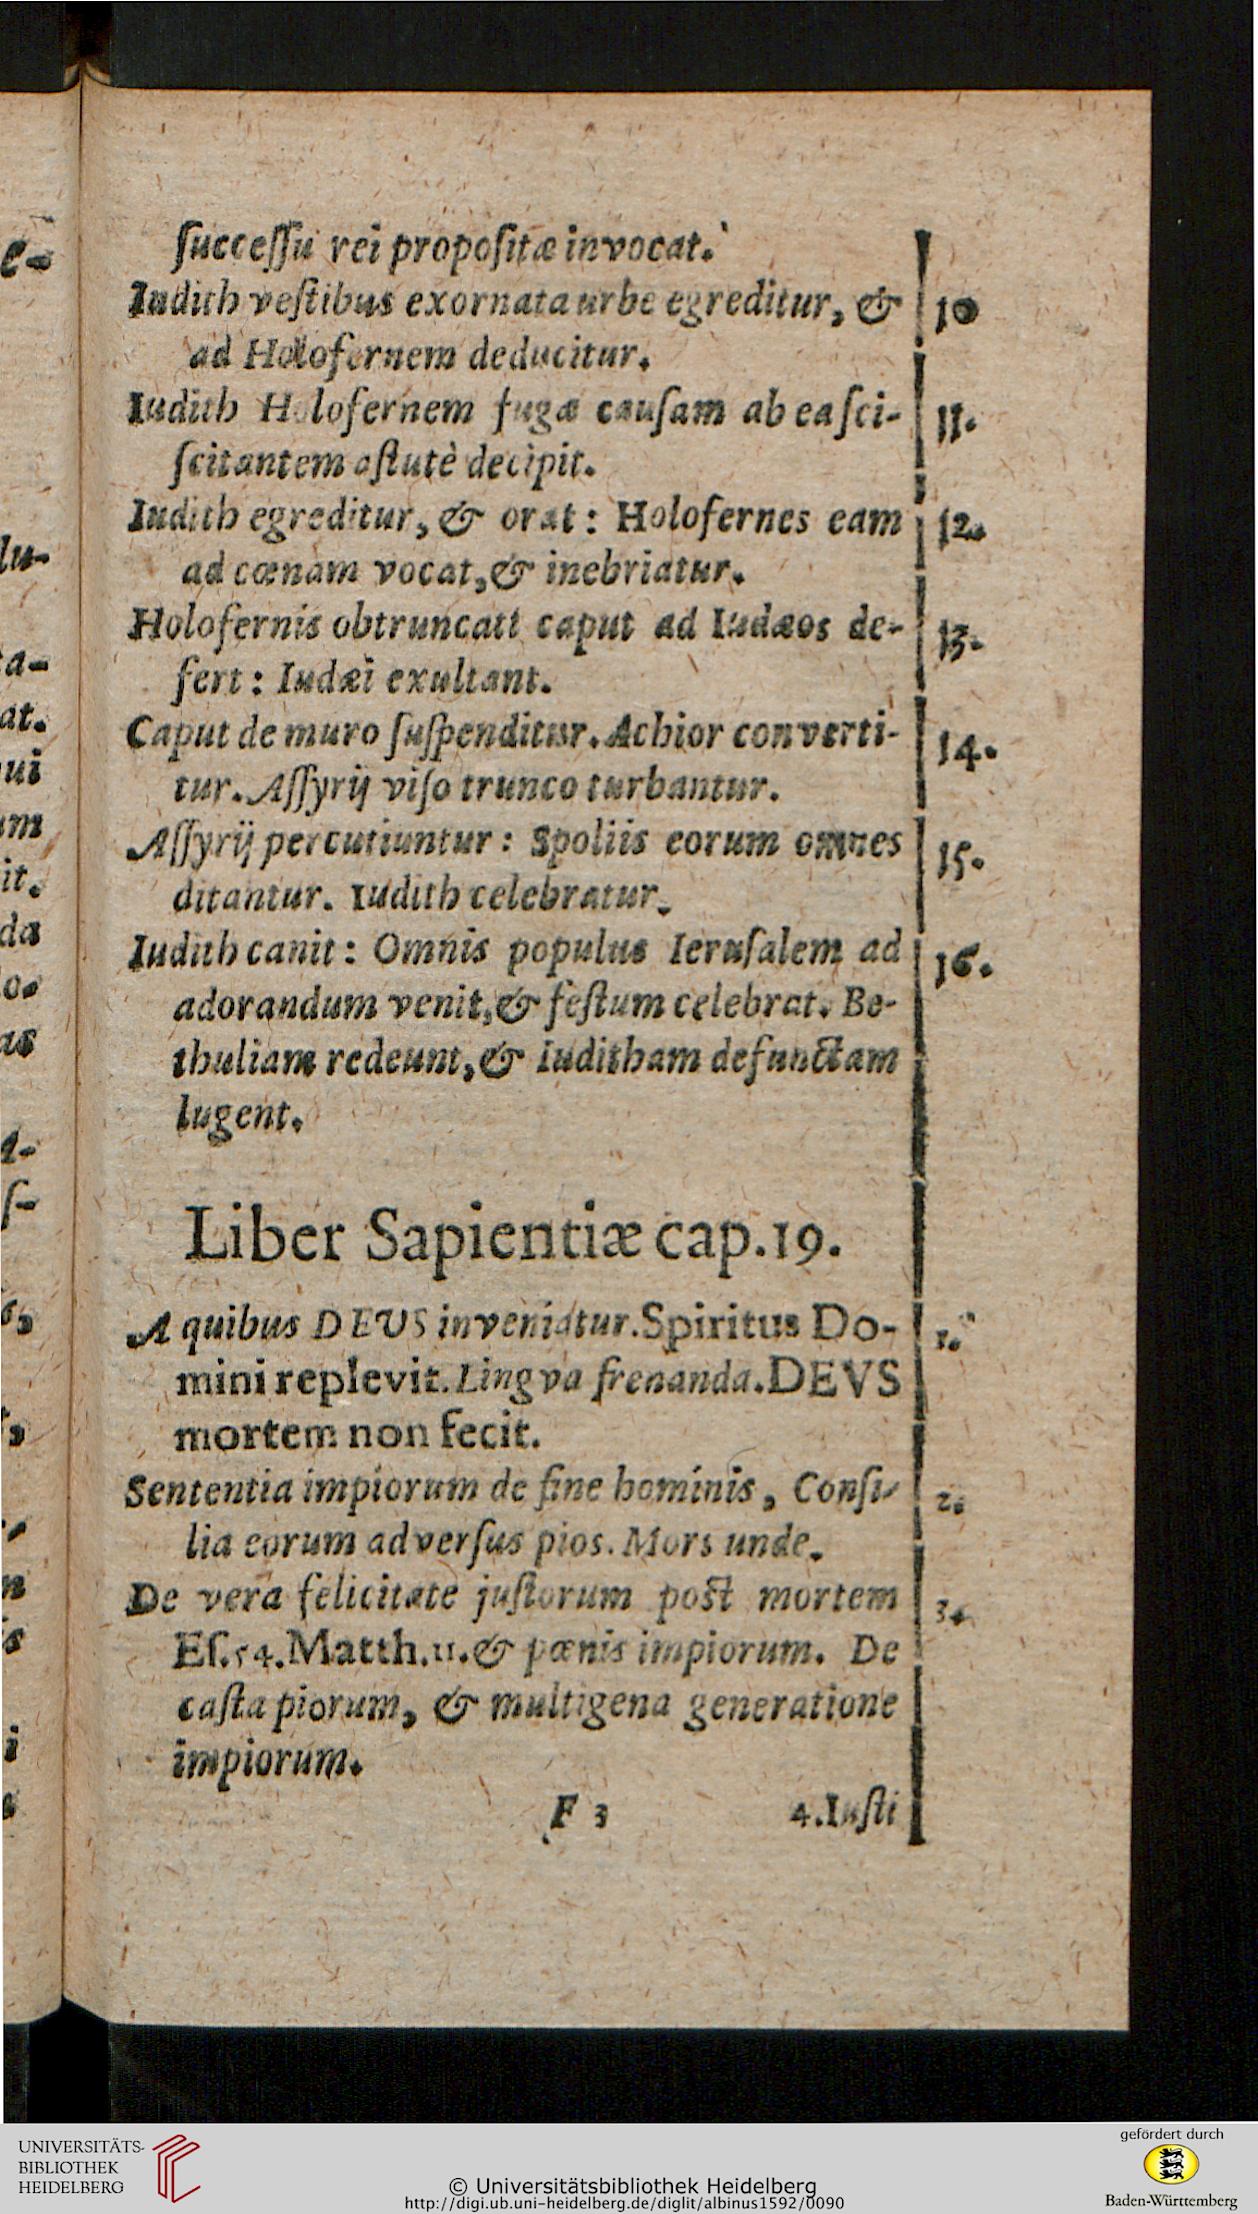 ſucceſſu rei propoſitæ invocat.
Iudith veſtibus exornata urbe egreditur, & 10
ad Holofernem deducitur.
Iudith Holofernem fugæ cauſam ab ea ſci- 11.
ſcitantem aſtutè decipit.
Iudith egreditur, & orat: Holofernes eam 12.
ad cœnam vocat, & inebriatur.
Holofernis obtruncati caput ad Iudæos de- 13.
fert: Iudæi exultant.
Caput de muro ſuſpenditur. Achior converti- 14.
tur. Aſſyrij viſo trunco turbantur.
Aſſyrij percutiuntur: Spoliis eorum omnes 15.
ditantur. Iudith celebratur.
Iudith canit: Omnis populus Ieruſalem ad 16.
adorandum venit, & feſtum celebrat. Be-
thuliam redeunt, & Iuditham defunctam
lugent.
Liber Sapientiæ cap. 19.
A quibus DEUS inveniatur. Spiritus Do- 1.
mini replevit. Lingva frenanda. DEVS
mortem non fecit.
Sententia impiorum de fine hominis, Conſi- 2.
lia eorum adverſus pios. Mors unde.
De vera felicitate juſtorum poſt mortem 3.
Eſ. 54. Matth. 11. & pœnis impiorum. De
caſta piorum, & multigena generatione
impiorum.
F 3 4. Iuſti
UNIVERSITÄTS-
BIBLIOTHEK
HEIDELBERG
© Universitätsbibliothek Heidelberg
http://digi.ub.uni-heidelberg.de/diglit/albinus1592/0090
gefördert durch
Baden-Württemberg